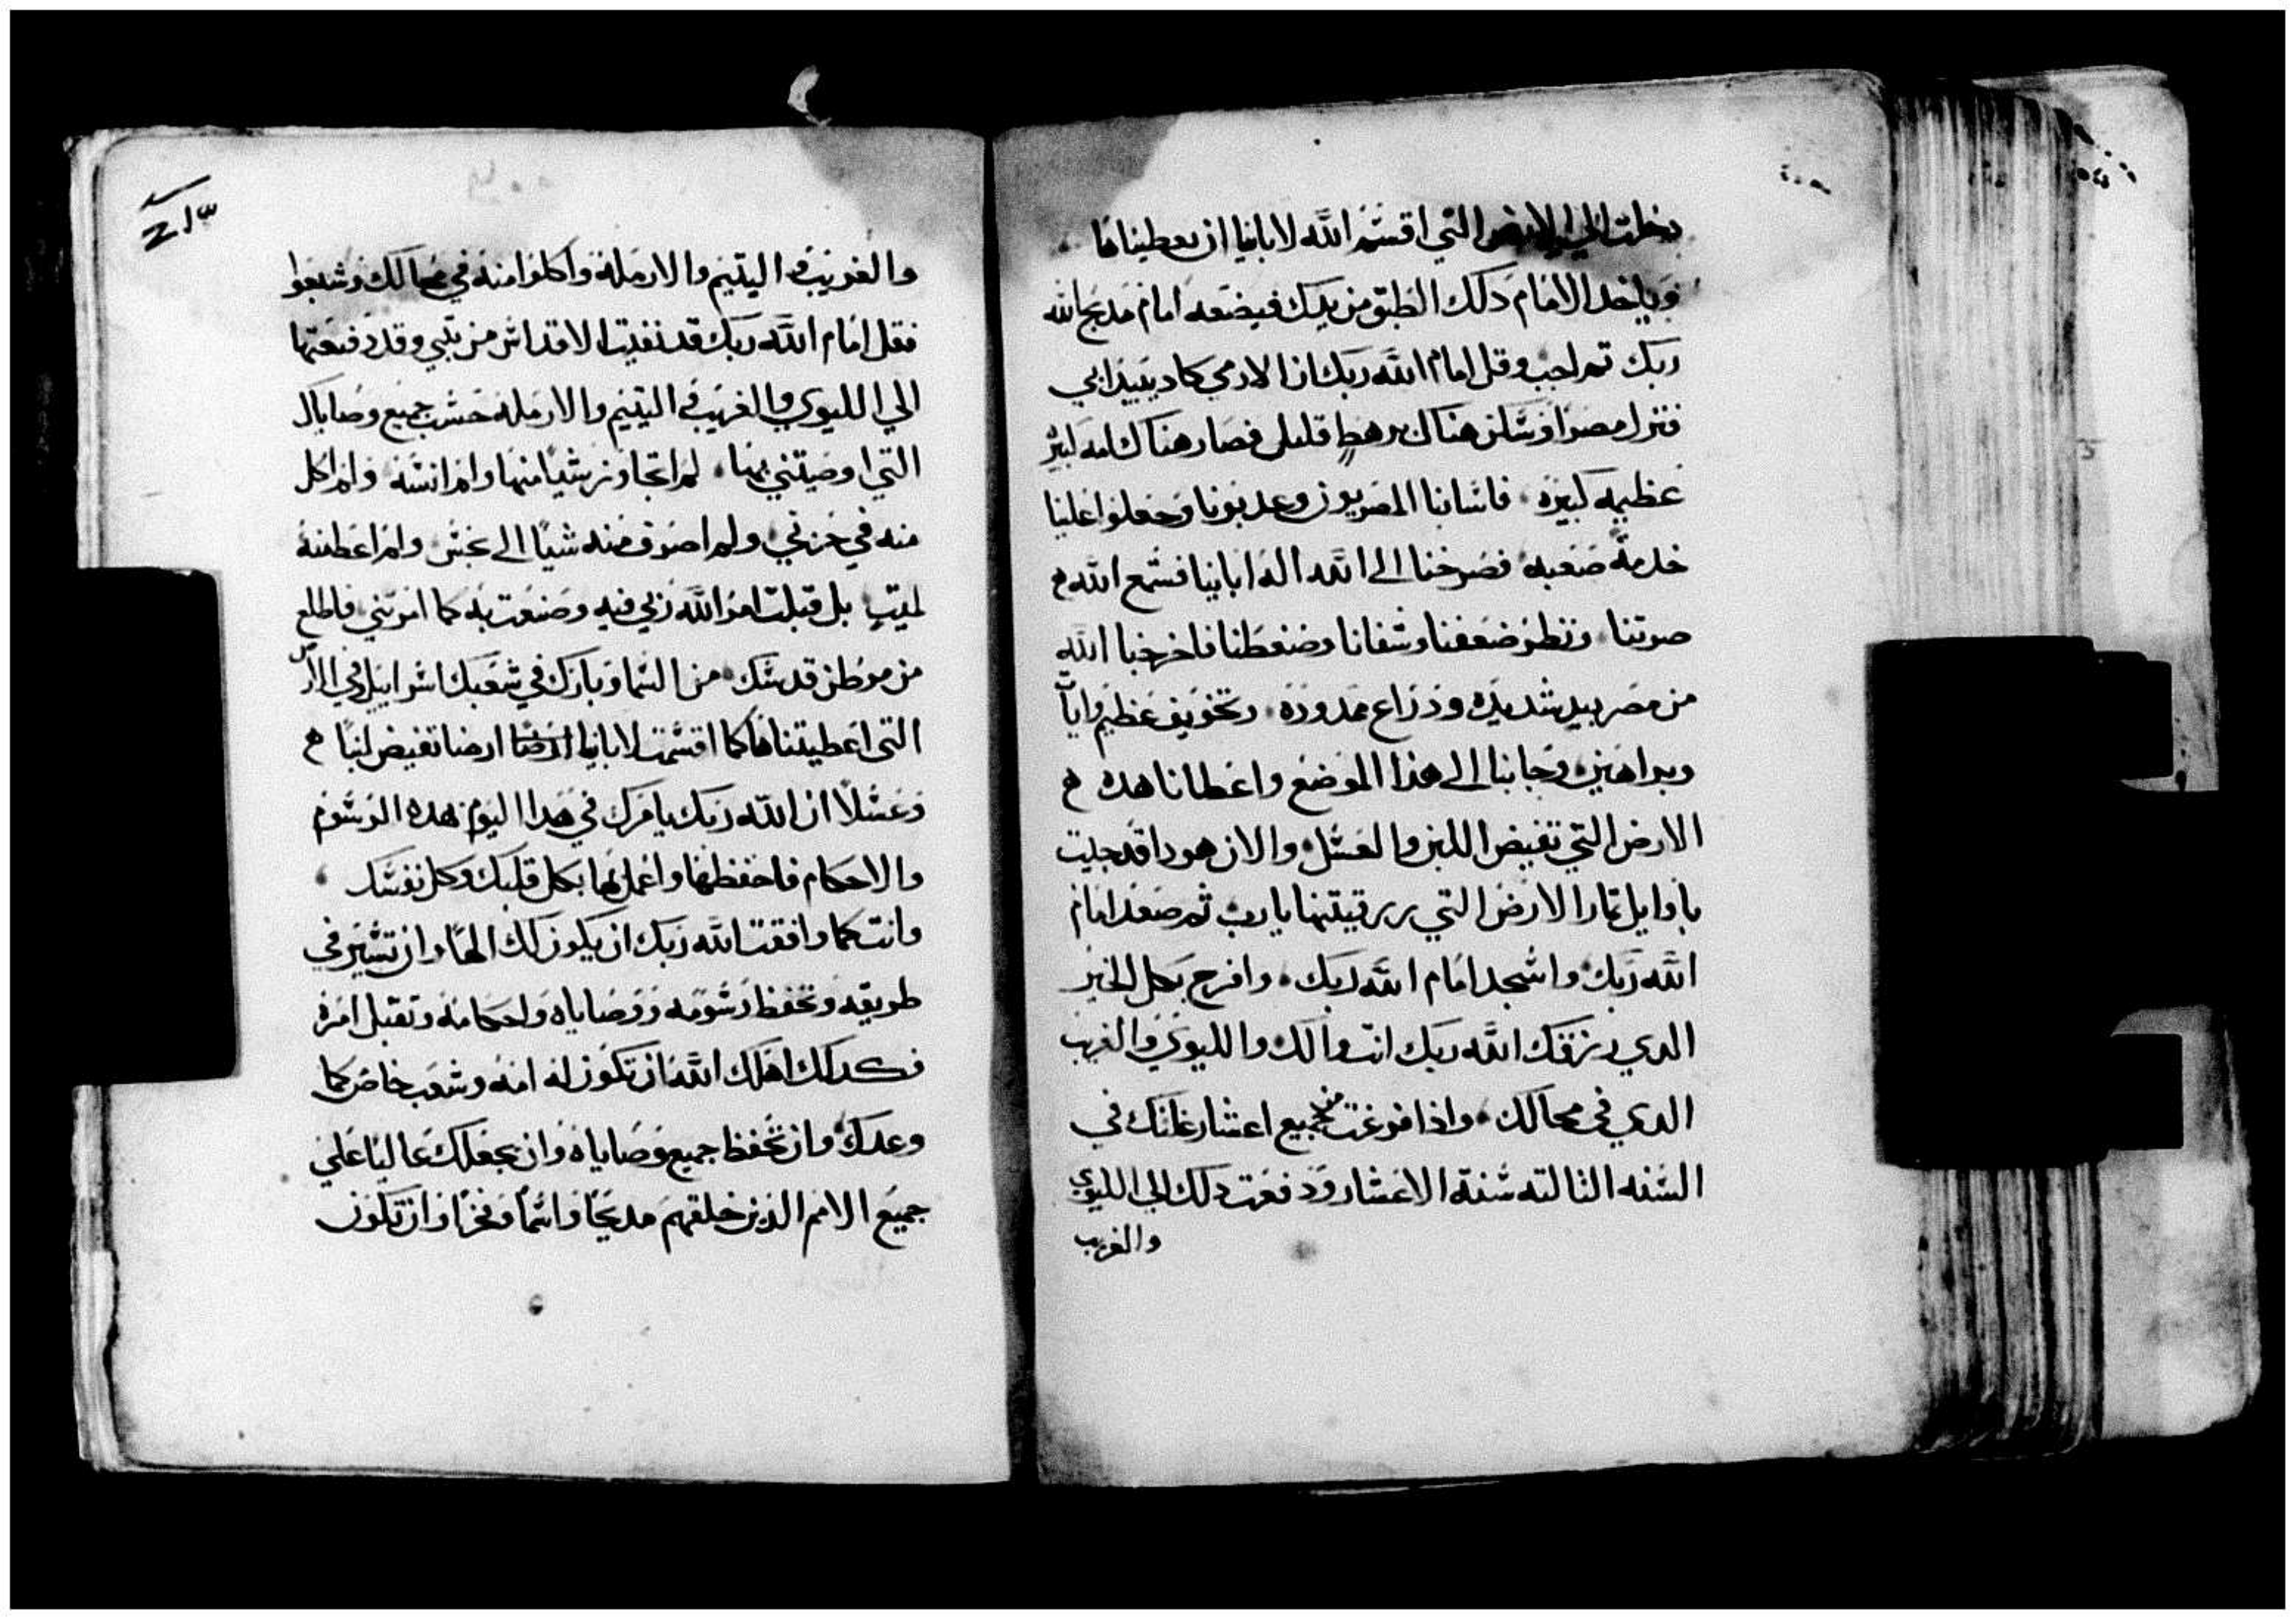 دخلت الي الارض التي اقسم الله لابانيا ان يعطيناها
وياخد الامام دلك الطبق من يدك فيضعه امام مدبح الله
ربك تم اجب وقل امام الله ربك ان الارمي كاد يبيد ابي
فنزل مصر وسكن هناك برهط قليل فصار هناك امه كبيره
عظيمه كبيره فاسانا المصريون وعدبونا وجعلوا علينا
خدمة صعبه فصرخنا الى الله اله ابانيا فسمع الله
صوتنا ونظر ضعفنا وشقانا وضغطنا فاخرجنا الله
من مصر بيد شديده ودراع ممدودة وتخويف عظيم وايات
وبراهين وجابنا الى هذا الموضع واعطانا هده
الارض التي تفيض اللبن والعسل والان هودا قد جيت
باوايل تمار الارض التي رزقتنيها يارب ثم ضعه امام
الله ربك واسجد امام الله ربك وافرح بكل الخير
الدي رزقك الله ربك انت والك والليوي والغريب
الدي في محالك واذا فرغت من جميع اعشار غلتك في
السنه التالته سنة الاعشار ودفعت دلك الي الليوي
والغريب
والغريب واليتيم والارملة واكلوا منه في محالك وشبعوا
فقل امام الله ربك قد نفيت الاقداس من بيتي وقد دفعتها
الي الليوي والغريب واليتيم والارمله حسب جميع وصاياك
التي اوصيتني بها لم اتجاوز شيا منها ولم انسه ولم اكل
منه في حزني ولم اصرف منه شيا الى نجس ولم اعط منه
لميت بل قبلت امر الله ربي فيه وصنعت به كما امرتني فاطلع
من موطن قدسك من السما وبارك في شعبك اسراييل وفي الارض
التي اعطيتناها كما اقسمت لابانيا ارضا تفيض لبنا
وعسلا ان الله ربك يامرك في هدا اليوم بهده الرسوم
والاحكام فاحفظها واعمل بها بكل قلبك وكل نفسك
وانت كما وافقت الله ربك ان يكون لك الها وان تسير في
طريقه وتحفظ رسومه ووصاياه واحكامه وتقبل امره
فكدلك اهلك الله ان تكون له امه وشعب خاص كما
وعدك وان تحفظ جميع وصاياه وان يجعلك عاليا علي
جميع الامم الذين خلقهم مديحا واسما وفخرا وان تكون